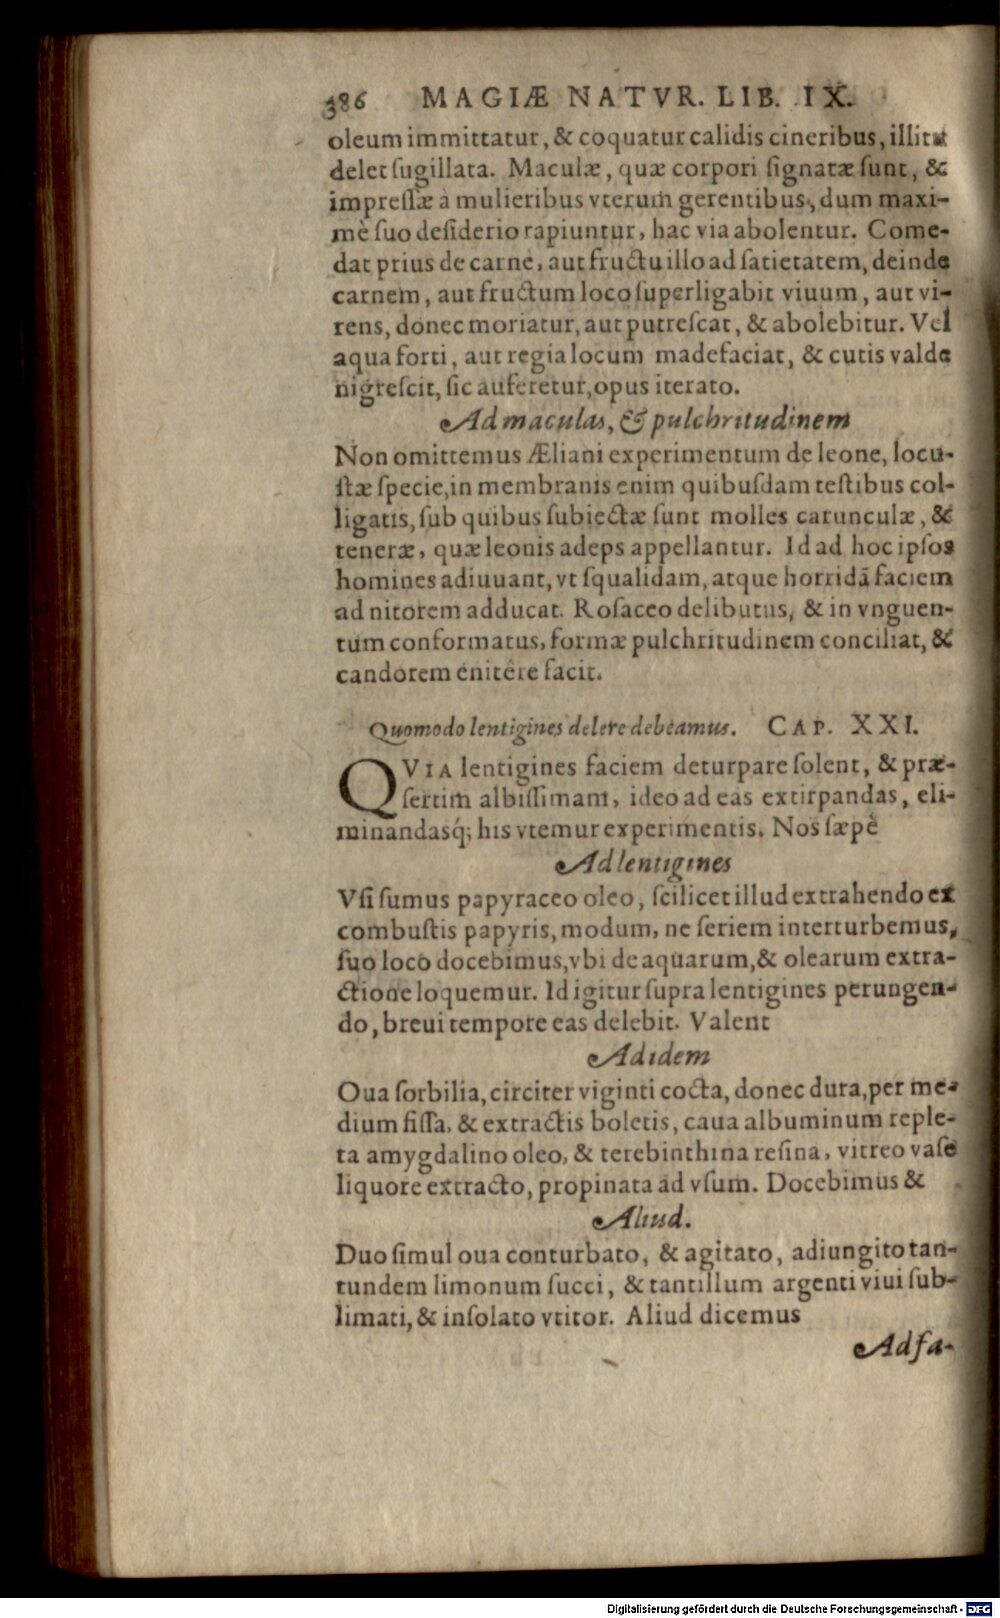 386 MAGIÆ NATVR. LIB. IX.
oleum immittatur, & coquatur calidis cineribus, illitū
delet ſugillata. Maculæ, quæ corpori ſignatæ ſunt, &
impreſſæ à mulieribus vterum gerentibus, dum maxi-
mè ſuo deſiderio rapiuntur, hac via abolentur. Come-
dat prius de carne, aut fructu illo ad ſatietatem, deinde
carnem, aut fructum loco ſuperligabit viuum, aut vi-
rens, donec moriatur, aut putreſcat, & abolebitur. Vel
aqua forti, aut regia locum madefaciat, & cutis valde
nigreſcit, ſic auferetur, opus iterato.
Ad maculas, & pulchritudinem
Non omittemus Æliani experimentum de leone, locu-
ſtæ ſpecie, in membranis enim quibuſdam teſtibus col-
ligatis, ſub quibus ſubiectæ ſunt molles carunculæ, &
teneræ, quæ leonis adeps appellantur. Id ad hoc ipſos
homines adiuuant, vt ſqualidam, atque horridā faciem
ad nitorem adducat. Roſaceo delibutus, & in vnguen-
tum conformatus, formæ pulchritudinem conciliat, &
candorem enitêre facit.
Quomodo lentigines delere debeamus. CAP. XXI.
QVIA lentigines faciem deturpare ſolent, & præ-
ſertim albiſſimam, ideo ad eas extirpandas, eli-
minandasq́; his vtemur experimentis. Nos ſæpè
Ad lentigines
Vſi ſumus papyraceo oleo, ſcilicet illud extrahendo ex
combuſtis papyris, modum, ne ſeriem interturbemus,
ſuo loco docebimus, vbi de aquarum, & olearum extra-
ctione loquemur. Id igitur ſupra lentigines perungen-
do, breui tempore eas delebit. Valent
Ad idem
Oua ſorbilia, circiter viginti cocta, donec dura, per me-
dium fiſſa, & extractis boletis, caua albuminum reple-
ta amygdalino oleo, & terebinthina reſina, vitreo vaſe
liquore extracto, propinata ad vſum. Docebimus &
Aliud.
Duo ſimul oua conturbato, & agitato, adiungito tan-
tundem limonum ſucci, & tantillum argenti viui ſub-
limati, & inſolato vtitor. Aliud dicemus
Ad fa-
Digitalisierung gefördert durch die Deutsche Forschungsgemeinschaft - DFG